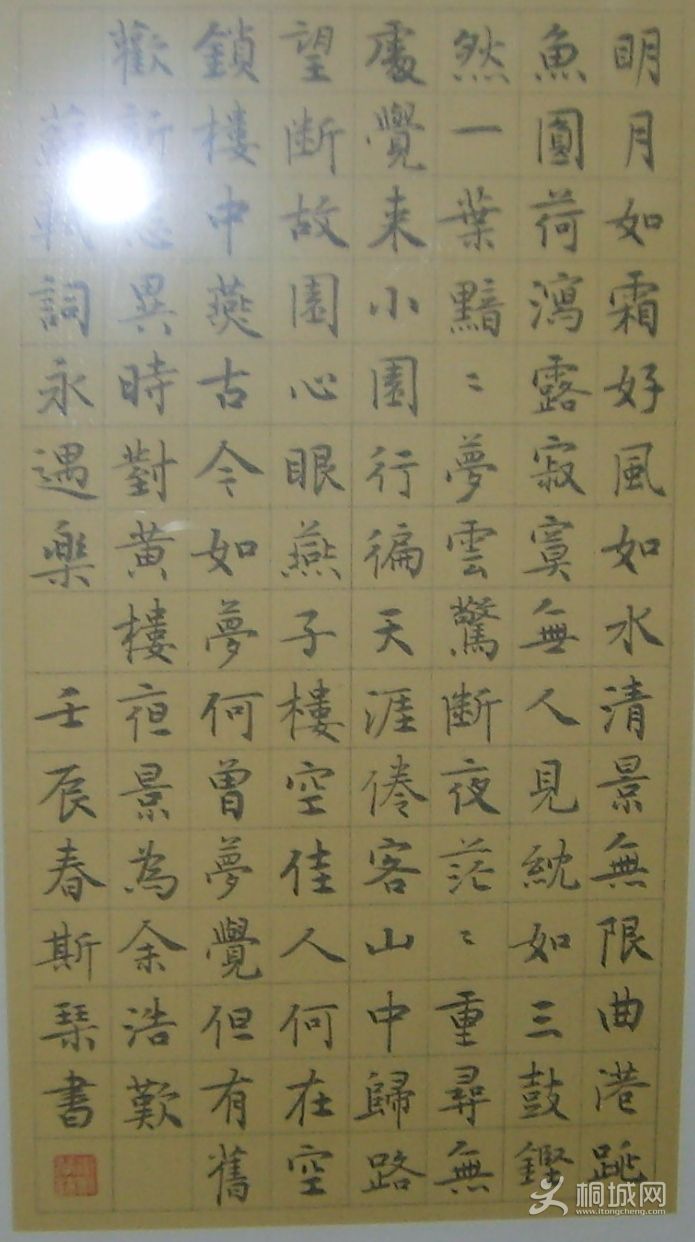 明月如霜好風如水清景無限曲港跳
魚圓荷瀉露寂寞無人見紞如三鼓鏗
然一葉黯〻夢雲驚斷夜茫〻重尋無
處覺來小園行徧天涯倦客山中歸路
望斷故園心眼燕子樓空佳人何在空
鎖樓中燕古今如夢何曾夢覺但有舊
歡新怨異時對黃樓夜景為余浩歎
蘇軾詞永遇樂 壬辰春斯琹書
桐城网
www.itongcheng.com